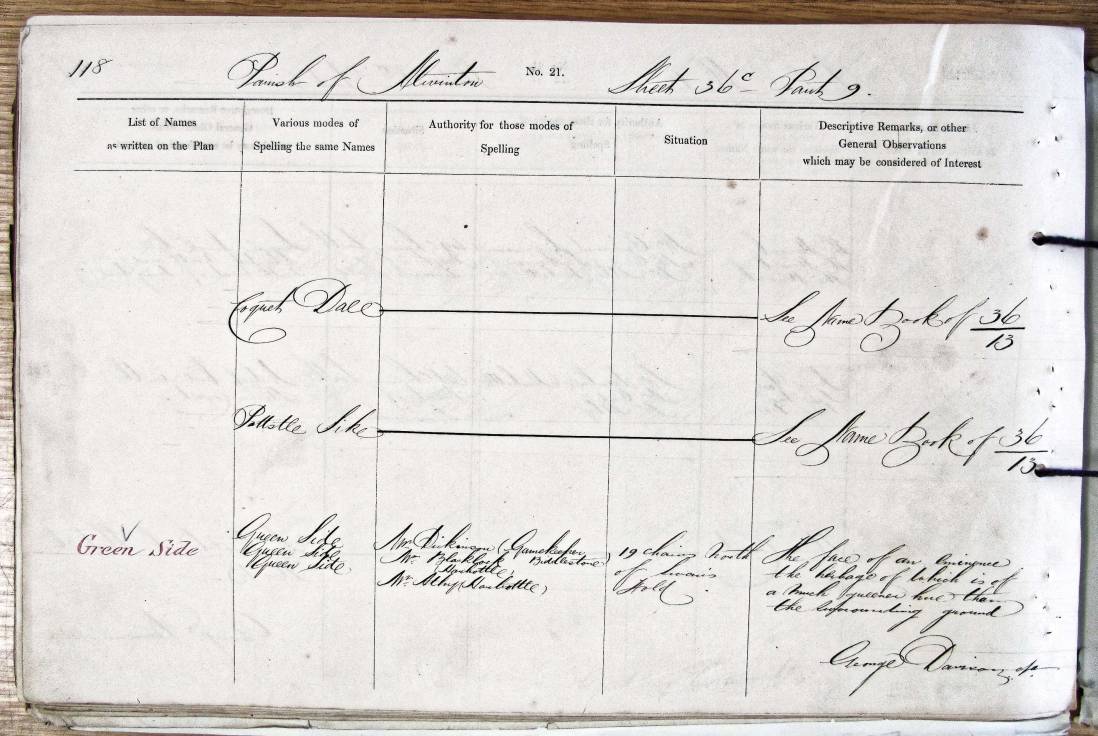 118
Parish of Alwinton
No. 21.
Sheet 36c Part 9.
List of Names
as written on the Plan
Various modes of
Spelling the same Names
Authority for those modes of
Spelling
Situation
Descriptive Remarks, or other
General Observations
which may be considered of Interest
Coquet Dale
See Name Book of 36/13
See Name Book of 36/13
Green Side
Green Side
Green Side
Green Side
Mr. Dickinson (Gamekeeper
Biddlestone)
Mr. Blacklock
Harbottle)
Mr. (Harbottle)
19 chains North
of Swain's
Fold
The face of an eminence
the herbage of which is of
a much greener hue than
the surrounding ground
George Davison